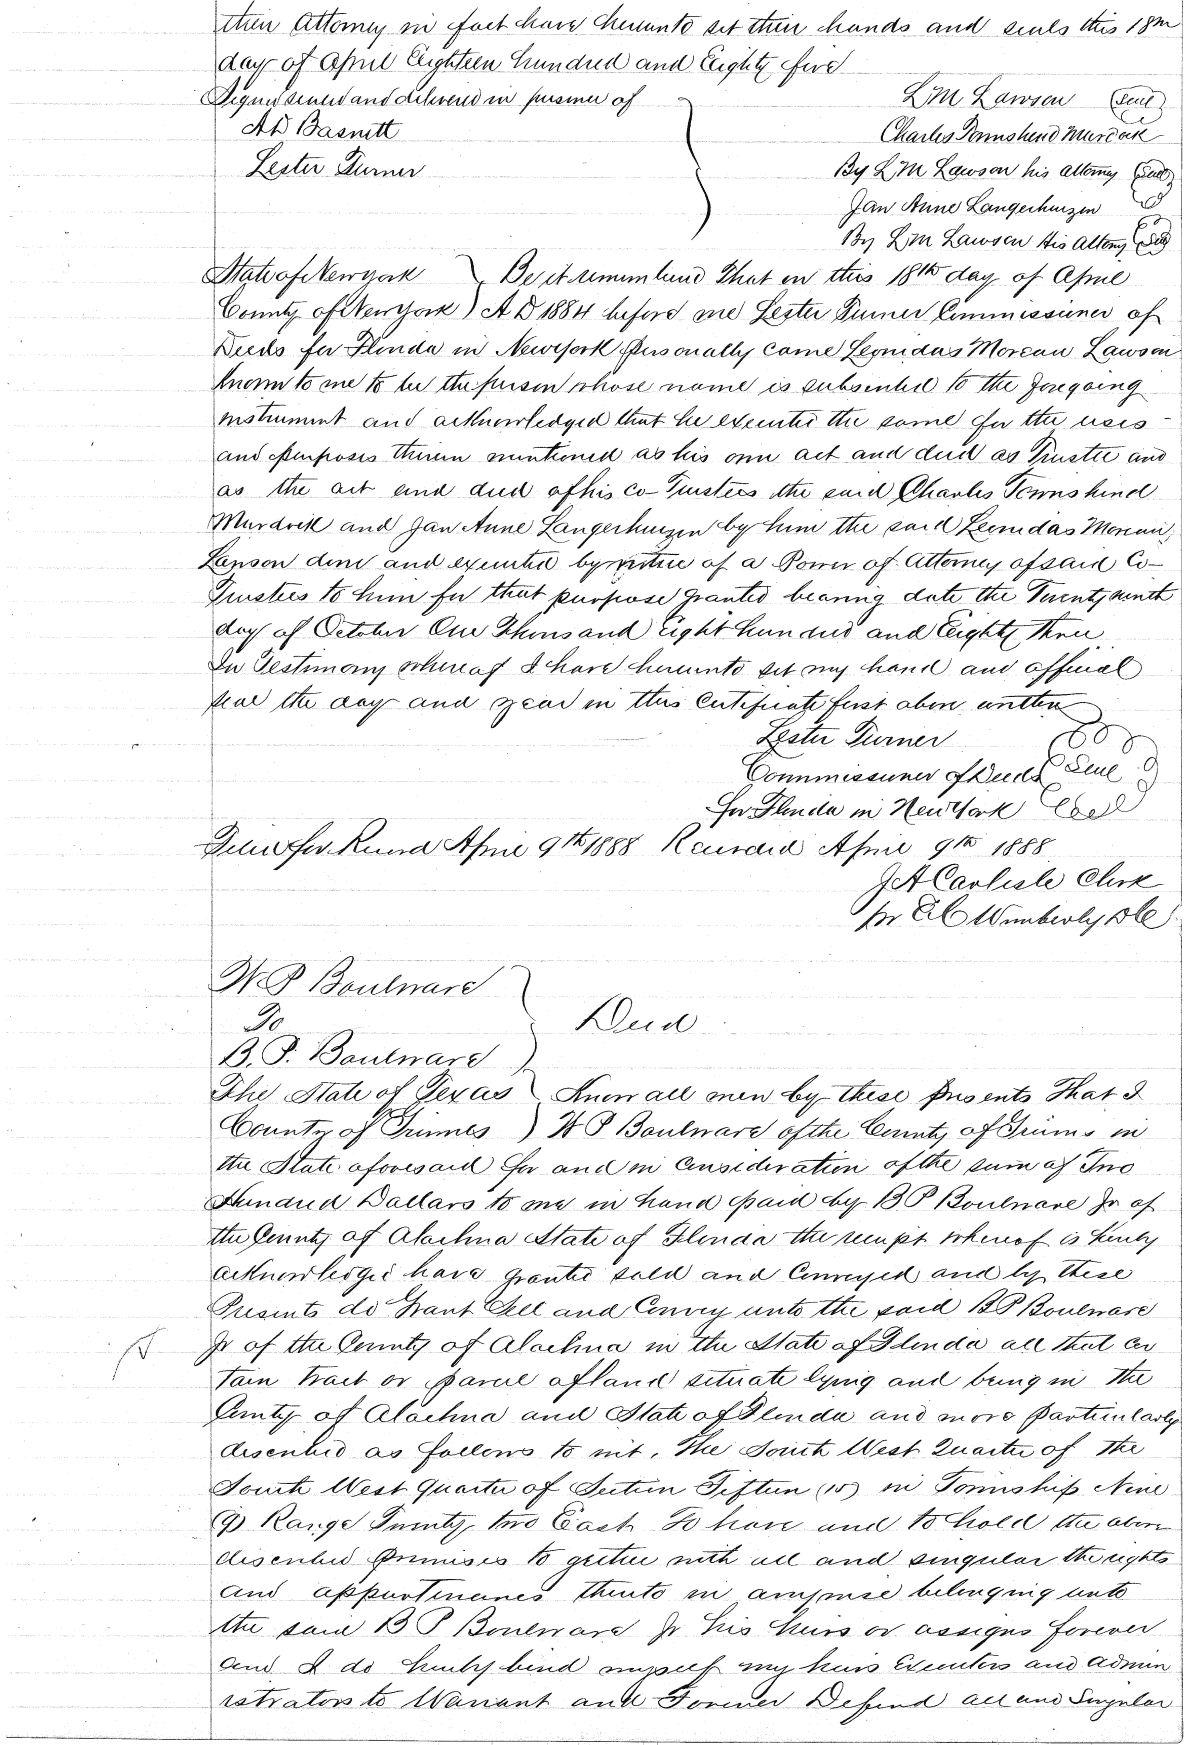 their Attorney in fact have hereunto set their hands and seals this 18th
day of April Eighteen hundred and Eighty five
Signed sealed and delivered in presence of
L M Lawson (Seal)
A D Basnett
Charles Townshend Murdock
Lester Turner
By L M Lawson his Attorney (Seal)
Jan Anne Langerhuizen
By L M Lawson His Attorny (Seal)
State of New York ) Be it remembered That on this 18th day of April
County of New York ) A D 1884 before me Lester Turner Commissioner of
Deeds for Florida in New York personally came Leonidas Moreau Lawson
known to me to be the person whose name is subscribed to the foregoing
instrument and acknowledged that he executed the same for the uses
and purposes therein mentioned as his own act and deed as Trustee and
as the act and deed of his co-Trustees the said Charles Townshend
Murdock and Jan Anne Langerhuizen by him the said Leonidas Moreau
Lawson done and executed by virtue of a Power of Attorney of said Co-
Trustees to him for that purpose granted bearing date the Twenty ninth
day of October One Thousand Eight hundred and Eighty Three
In Testimony whereof I have hereunto set my hand and official
seal the day and year in this Certificate first above written
Lester Turner
Commissioner of Deeds Seal
for Florida in New York
Filed for Record April 9th 1888 Recorded April 9th 1888
J A Carlisle Clerk
pr Wimberly DC
W. P Boulware
To Deed
B. P. Boulware )
The State of Texas ) Know all men by these presents That I
County of Grimes ) W P Boulware of the County of Grimes in
the State aforesaid for and in Consideration of the sum of Two
Hundred Dollars to me in hand paid by B P Boulware Jr of
the County of Alachua State of Florida the receipt whereof is hereby
acknowledged have granted sold and Conveyed and by these
Presents do Grant Sell and Convey unto the said B P Boulware
Jr of the County of Alachua in the State of Florida all that cer
tain tract or parcel of land situate lying and being in the
County of Alachua and State of Florida and more particularly
described as follows to wit, The South West Quarter of the
South West quarter of Section Fifteen (15) in Township Nine
(9) Range Twenty two East To have and to hold the above
described premises to gether with all and singular the rights
and appurtenances thereto in anywise belonging unto
the said B P Boulware Jr his heirs or assigns forever
and I do hereby bind myself my heirs Executors and admin
istrators to Warrant and Forever Defend all and Singular